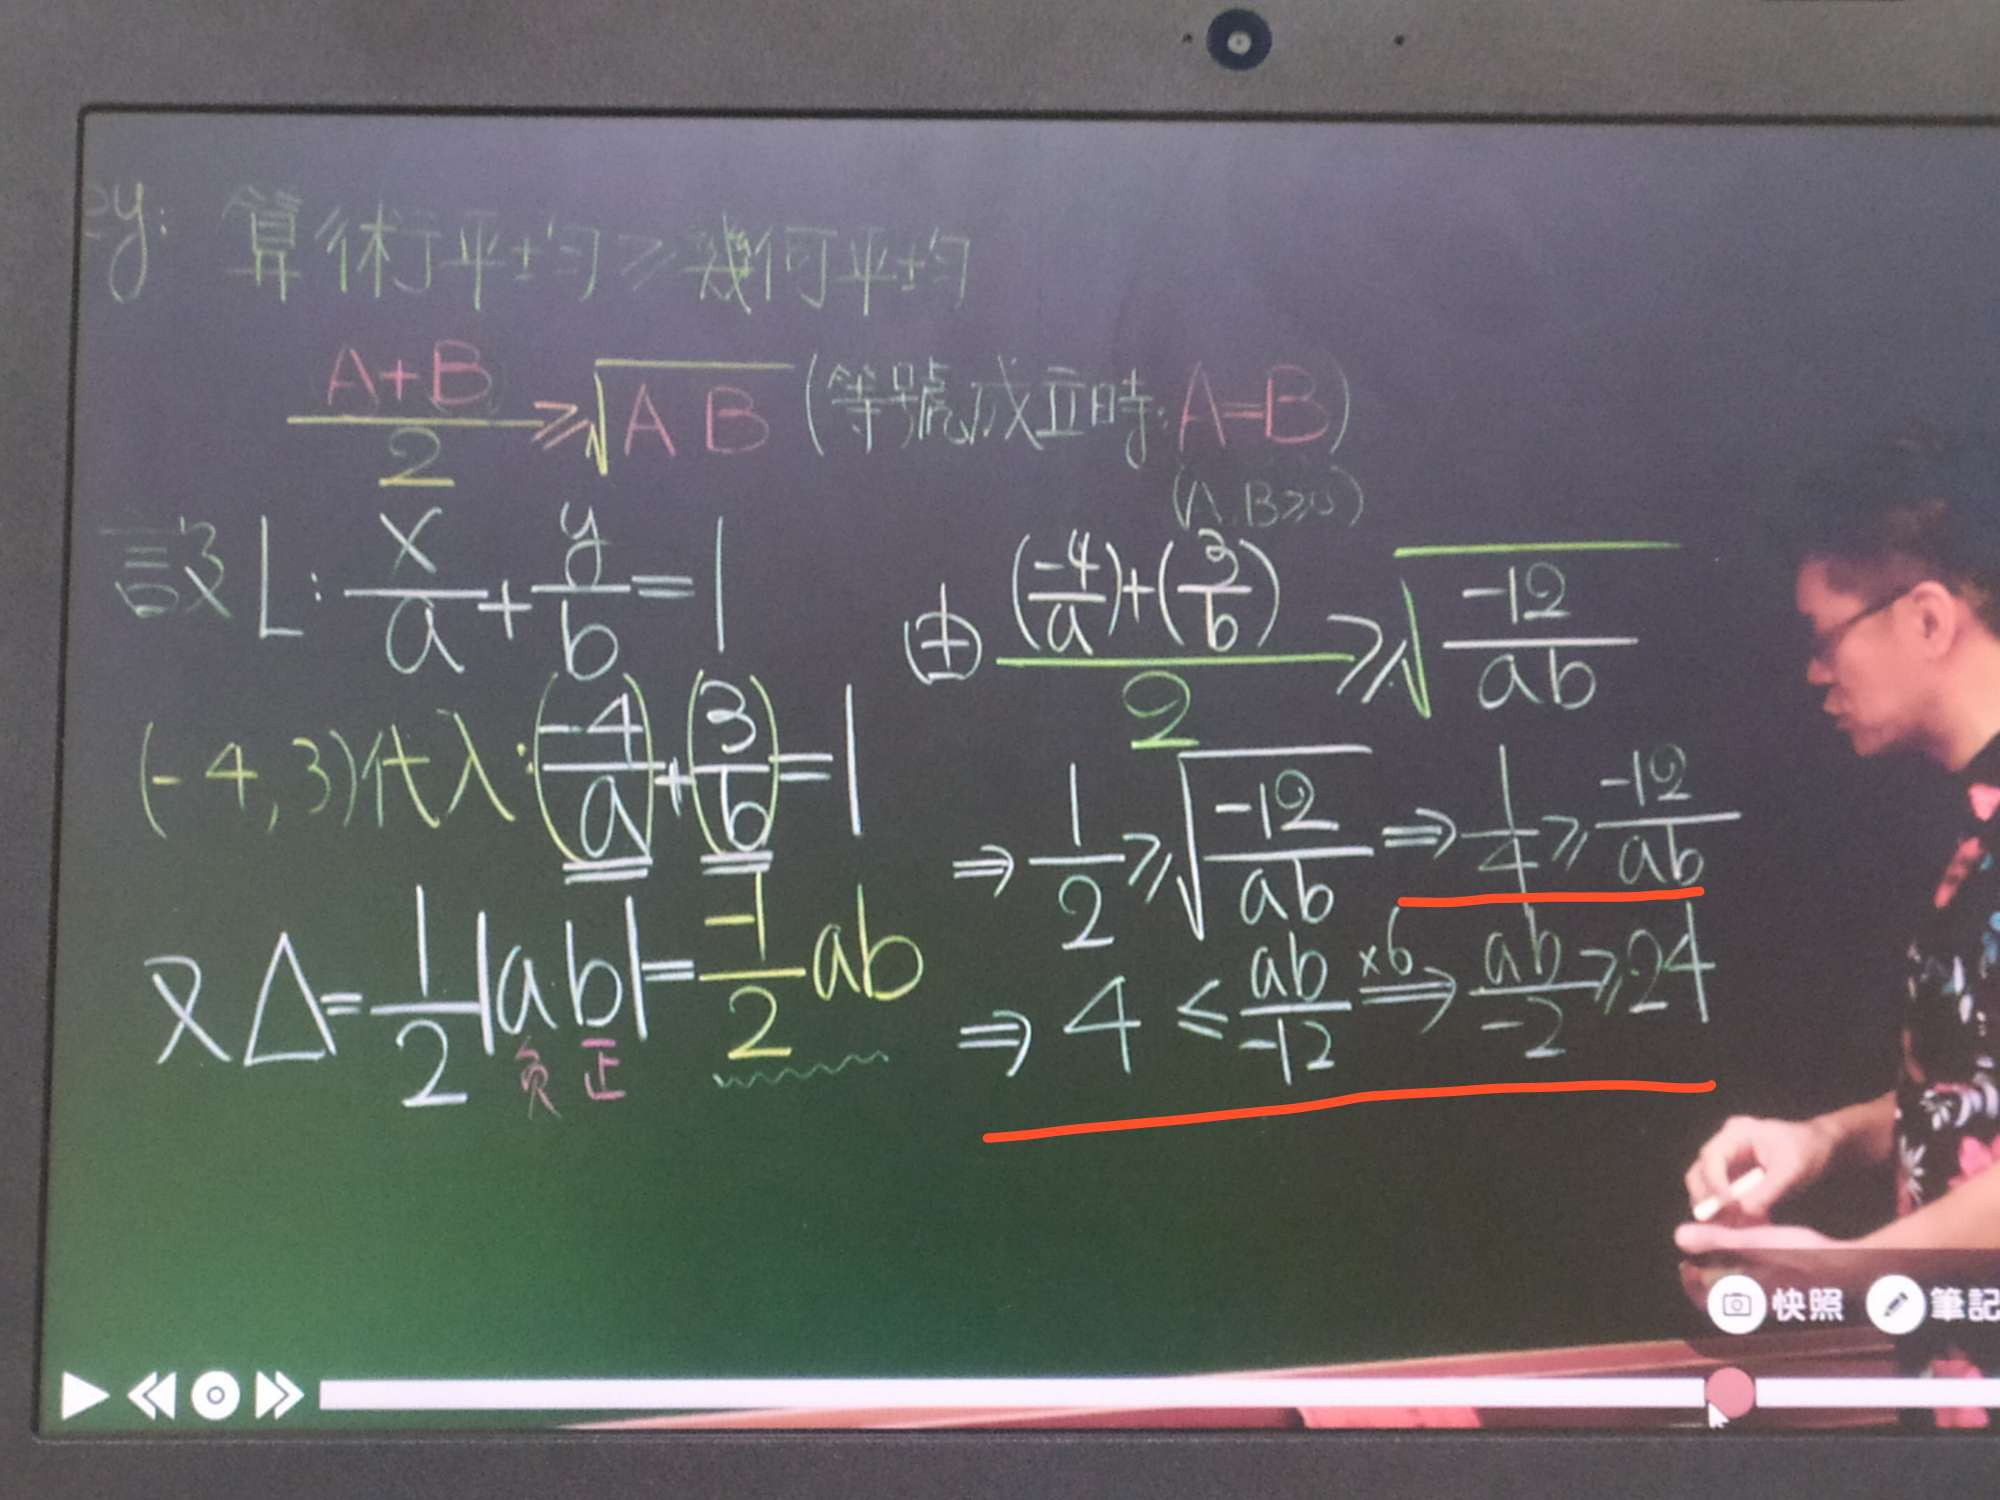 ey: 算術平均≥幾何平均
(A+B)/2 ≥ √(AB) (等號成立時:A=B)
(A,B≥0)
設 L: x/a + y/b = 1
(-4,3)代入: (-4/a)+(3/b)=1
又△=1/2|ab|=-1/2 ab
負 正
由 ((-4/a)+(3/b))/2 ≥ √(-12/ab)
⇒ 1/2 ≥ √(-12/ab) ⇒ 1/4 ≥ -12/ab
⇒ 4 ≤ ab/-12 ×6⇒ ab/-2 ≥ 24
快照 筆記